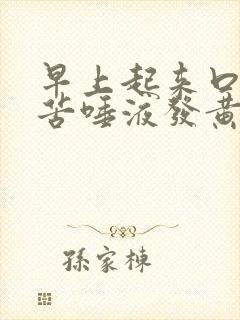 早上起来口
苦唾液發黄
孫家棟